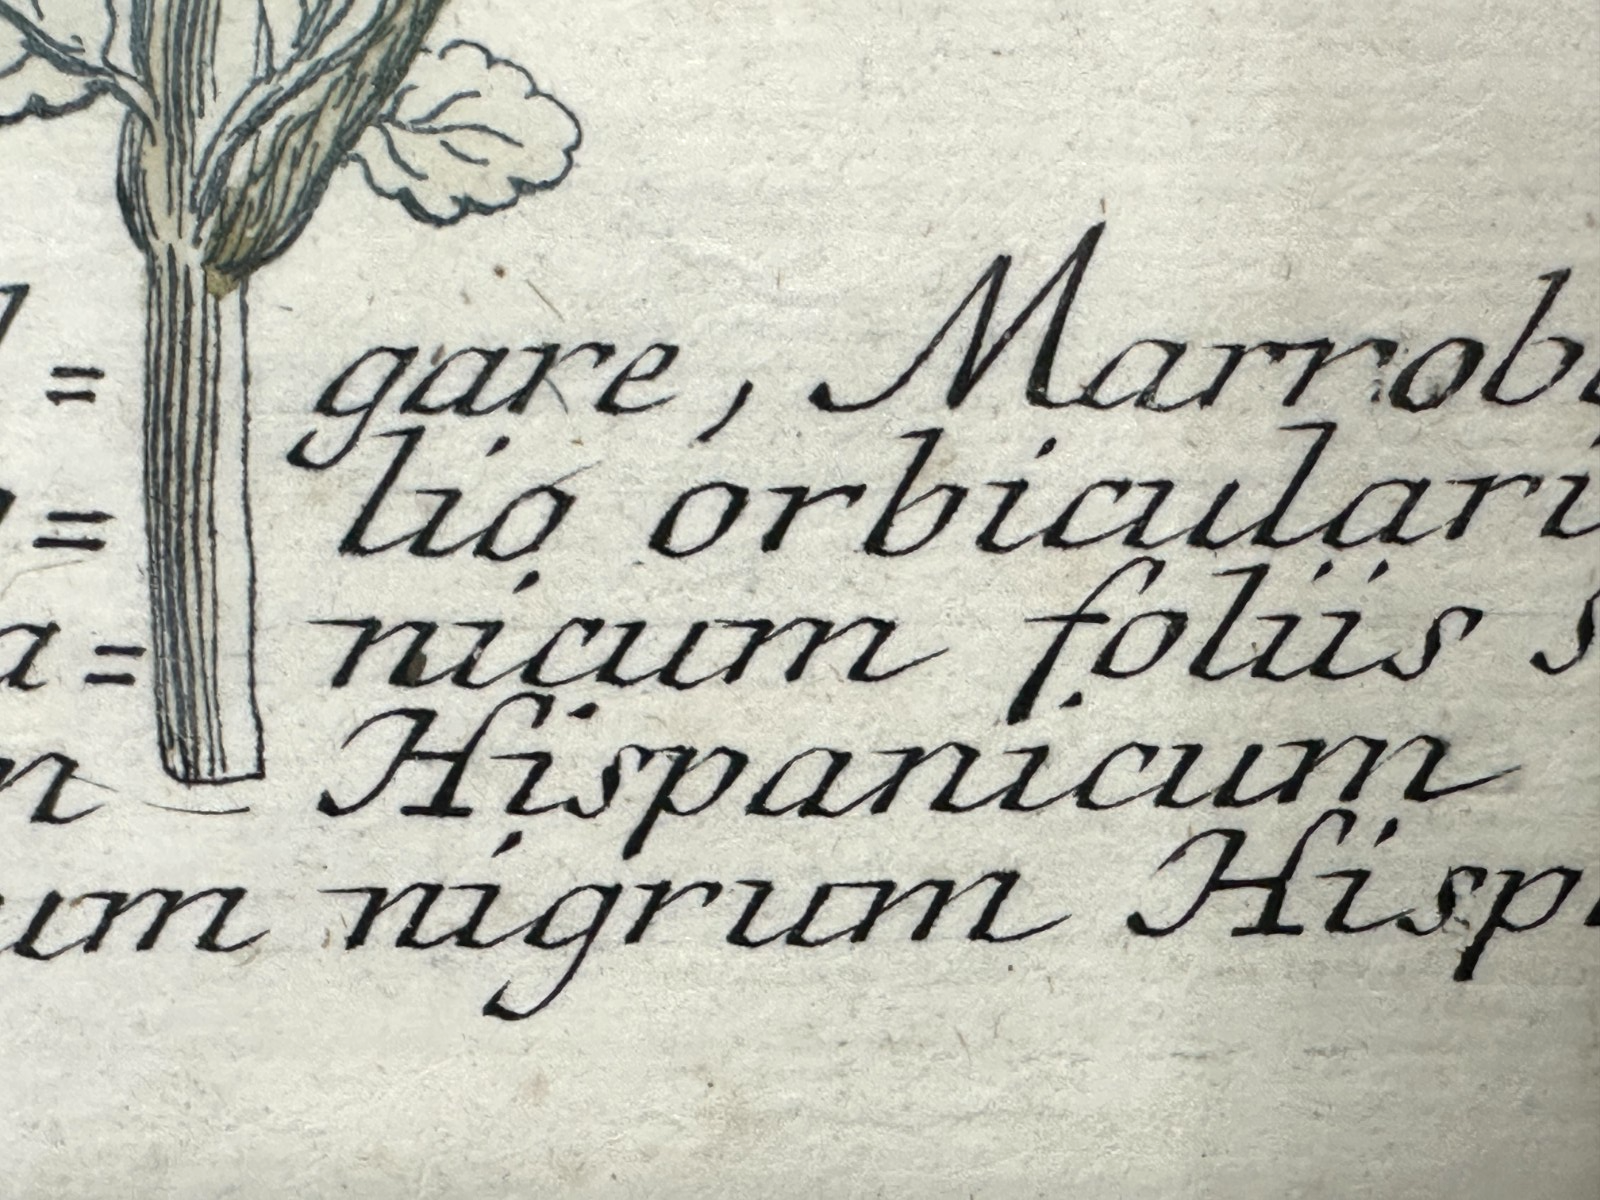 = gare, Marrob
= lio orbiculari
a= nicum foliis s
n Hispanicum
um nigrum Hisp